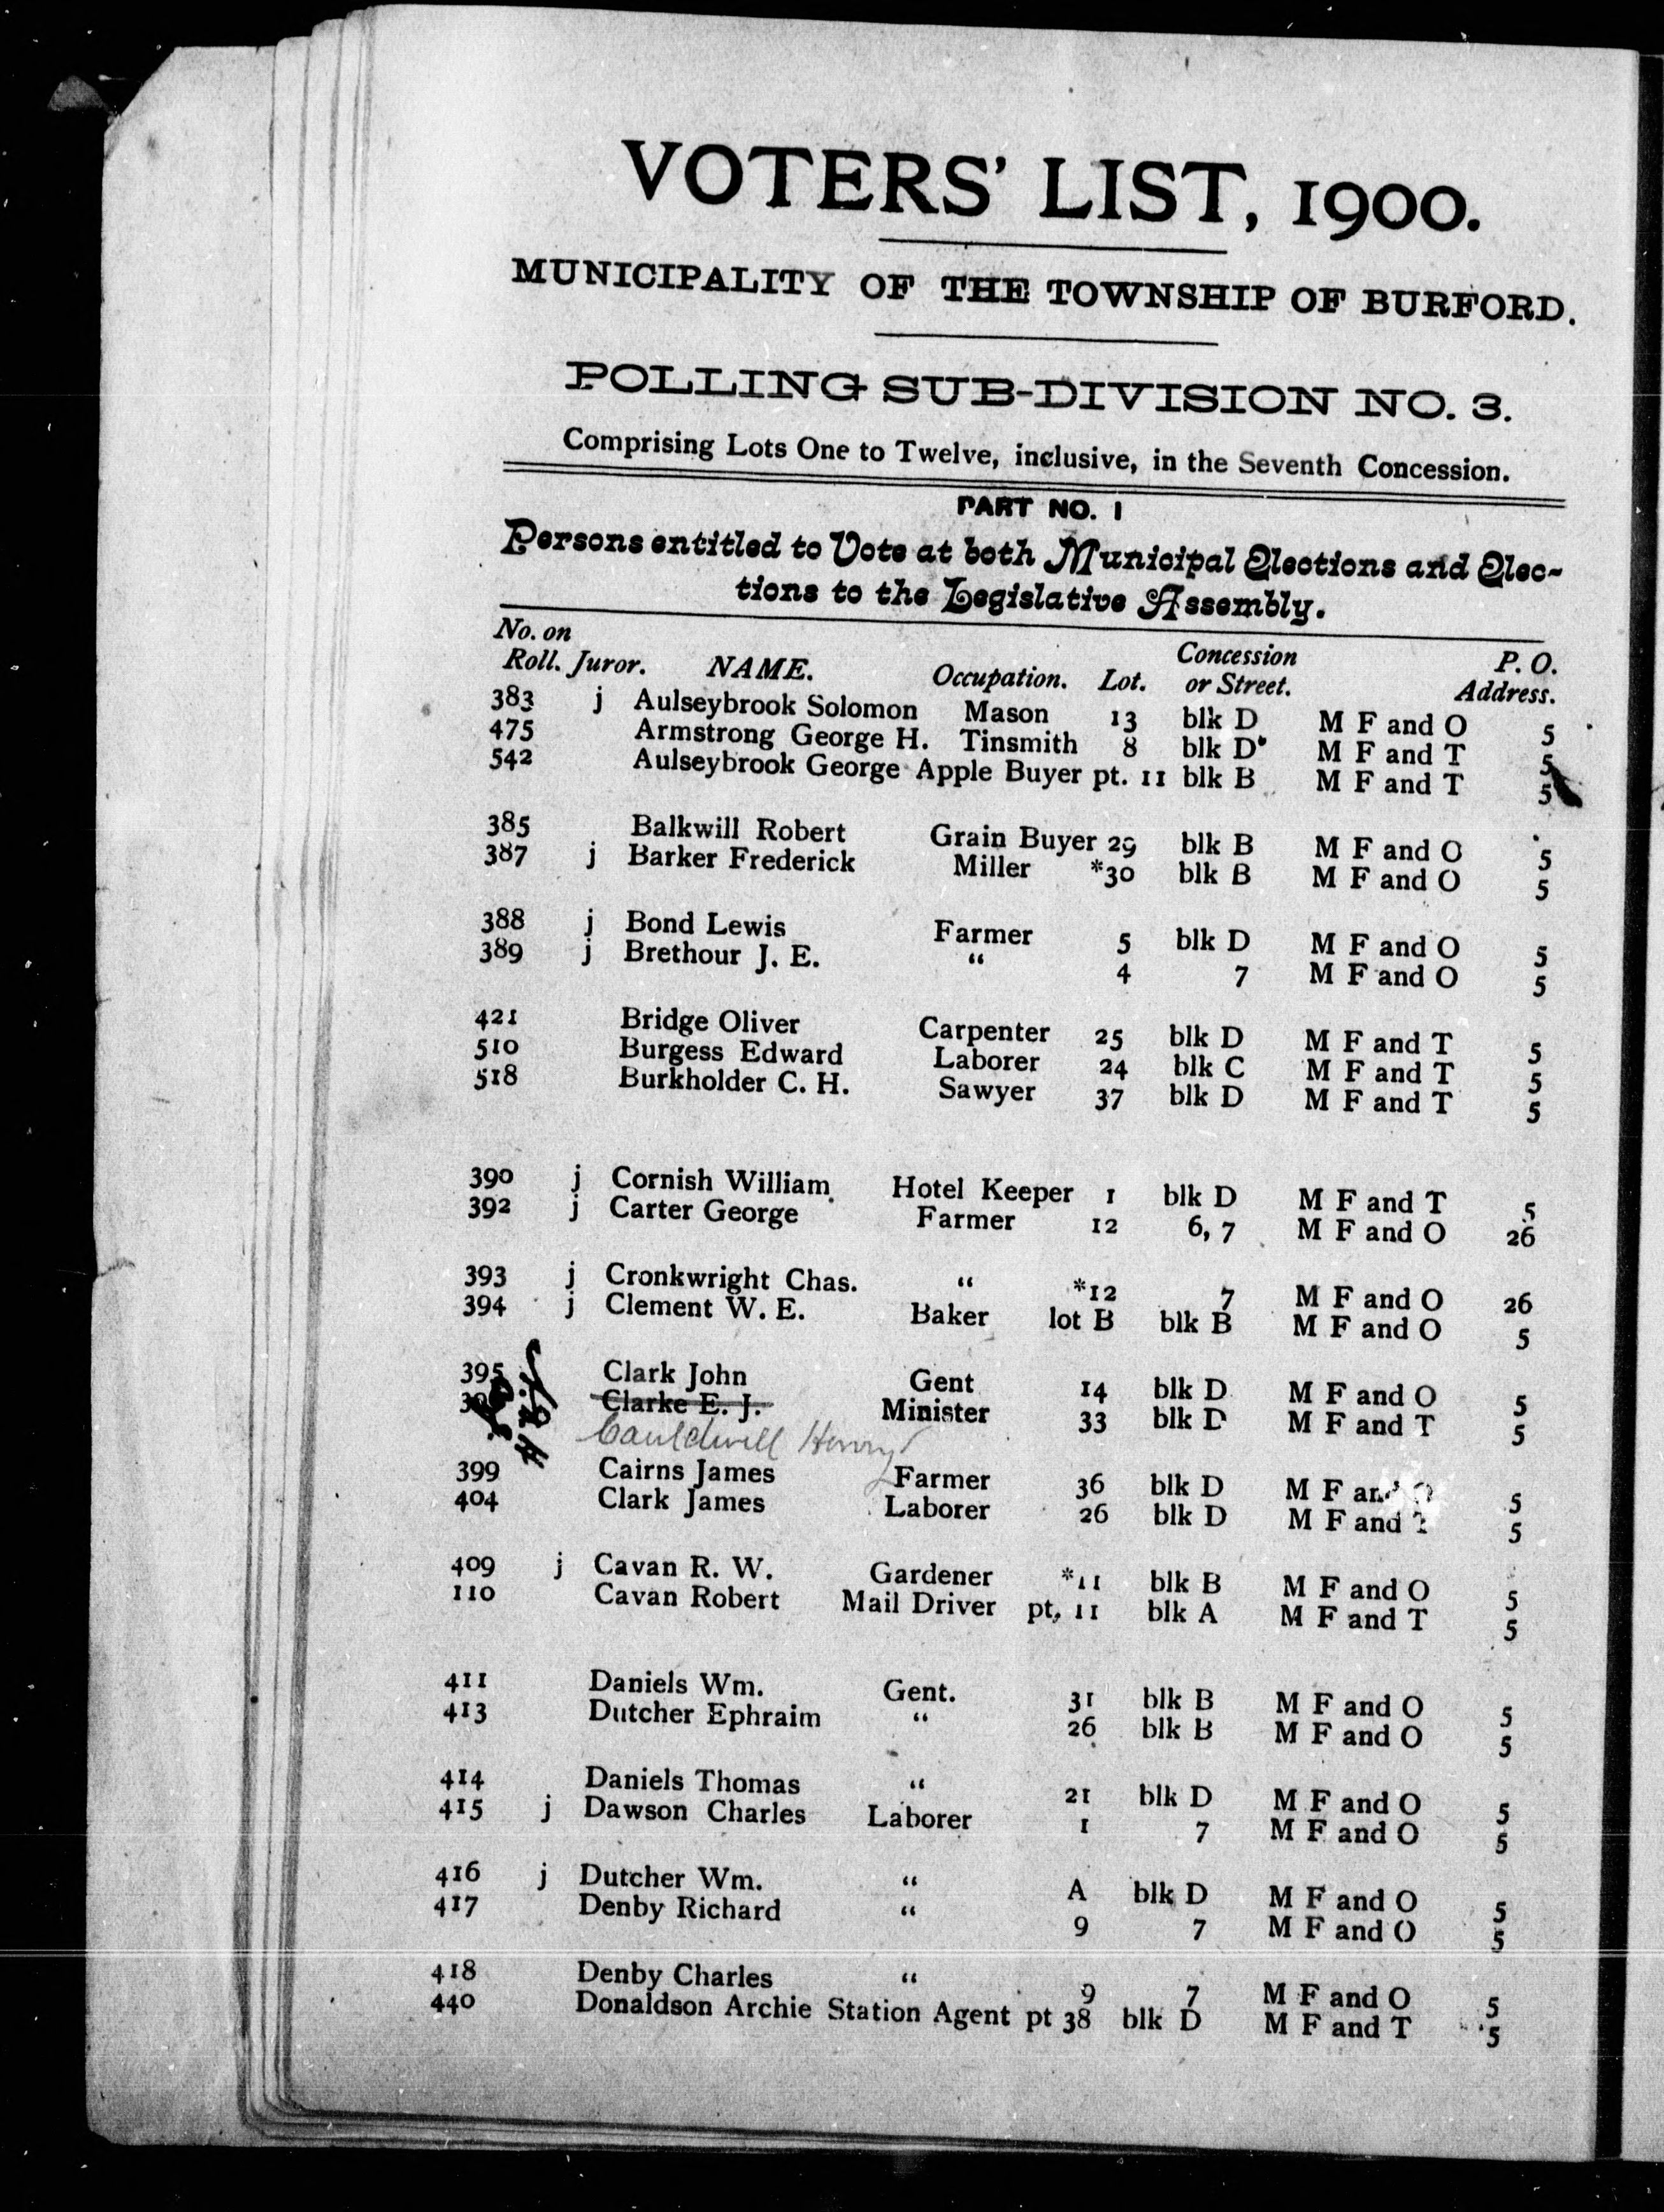 VOTERS' LIST, 1900.
MUNICIPALITY OF THE TOWNSHIP OF BURFORD.
POLLING SUB-DIVISION NO. 3.
Comprising Lots One to Twelve, inclusive, in the Seventh Concession.
PART NO. I
Persons entitled to Vote at both Municipal Elections and Elec-
tions to the Legislative Assembly.
No. on Roll. Juror. NAME. Occupation. Lot. Concession or Street. P. O. Address.
383 j Aulseybrook Solomon Mason 13 blk D M F and O 5
475 Armstrong George H. Tinsmith 8 blk D M F and T 5
542 Aulseybrook George Apple Buyer pt. 11 blk B M F and T 5
385 Balkwill Robert Grain Buyer 29 blk B M F and O 5
387 j Barker Frederick Miller *30 blk B M F and O 5
388 j Bond Lewis Farmer 5 blk D M F and O 5
389 j Brethour J. E. " 4 7 M F and O 5
421 Bridge Oliver Carpenter 25 blk D M F and T 5
510 Burgess Edward Laborer 24 blk C M F and T 5
518 Burkholder C. H. Sawyer 37 blk D M F and T 5
390 j Cornish William Hotel Keeper 1 blk D M F and T 5
392 j Carter George Farmer 12 6, 7 M F and O 26
393 j Cronkwright Chas. " *12 7 M F and O 26
394 j Clement W. E. Baker lot B blk B M F and O 5
395 Clark John Gent 14 blk D M F and O 5
Clarke E. J. Minister 33 blk D M F and T 5
Cauldwell Henry
399 Cairns James Farmer 36 blk D M F and O 5
404 Clark James Laborer 26 blk D M F and T 5
409 j Cavan R. W. Gardener *11 blk B M F and O 5
110 Cavan Robert Mail Driver pt, 11 blk A M F and T 5
411 Daniels Wm. Gent. 31 blk B M F and O 5
413 Dutcher Ephraim " 26 blk B M F and O 5
414 Daniels Thomas " 21 blk D M F and O 5
415 j Dawson Charles Laborer 1 7 M F and O 5
416 j Dutcher Wm. " A blk D M F and O 5
417 Denby Richard " 9 7 M F and O 5
418 Denby Charles " 9 7 M F and O 5
440 Donaldson Archie Station Agent pt 38 blk D M F and T 5